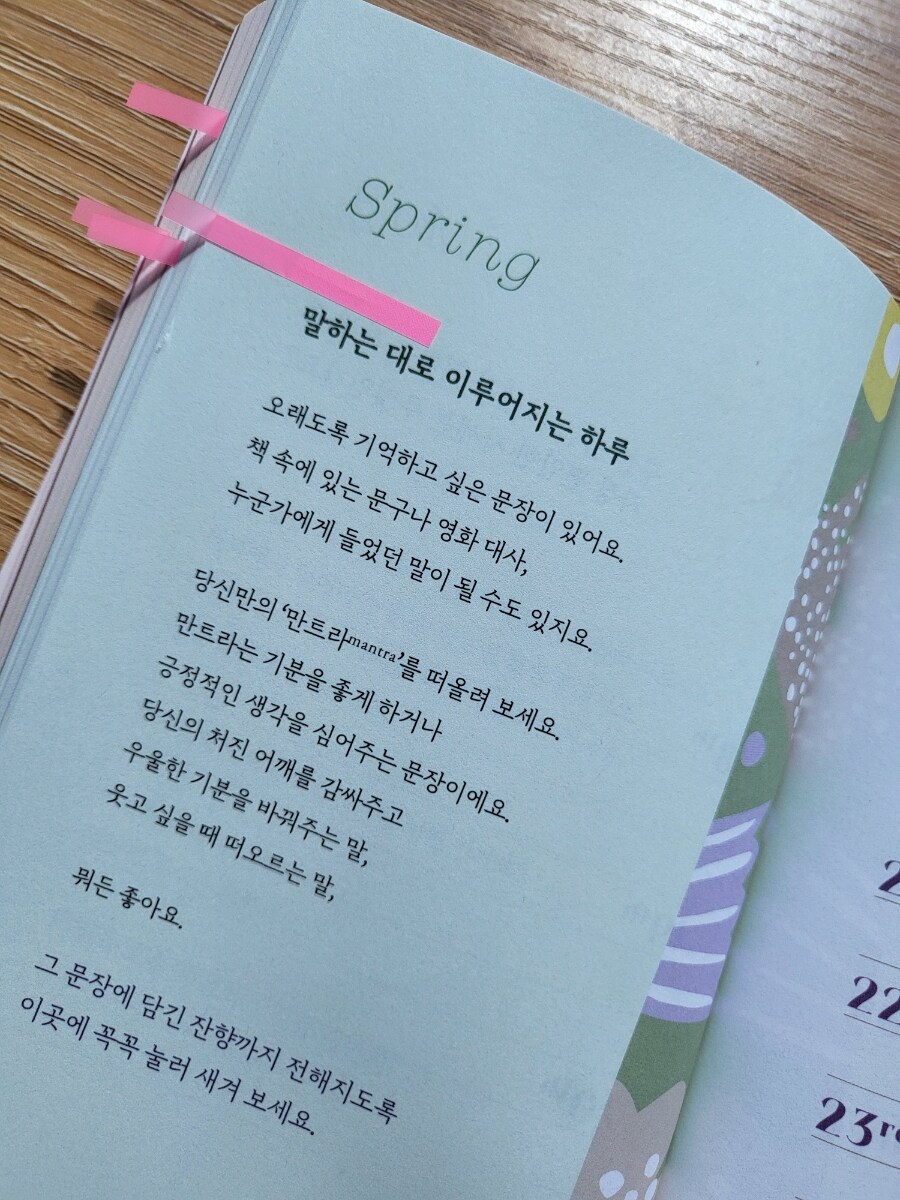 Spring
말하는 대로 이루어지는 하루
오래도록 기억하고 싶은 문장이 있어요.
책 속에 있는 문구나 영화 대사,
누군가에게 들었던 말이 될 수도 있지요.
당신만의 ‘만트라mantra’를 떠올려 보세요.
만트라는 기분을 좋게 하거나
긍정적인 생각을 심어주는 문장이에요.
당신의 처진 어깨를 감싸주고
우울한 기분을 바꿔주는 말,
웃고 싶을 때 떠오르는 말,
뭐든 좋아요.
그 문장에 담긴 잔향까지 전해지도록
이곳에 꼭꼭 눌러 새겨 보세요.
22
23r